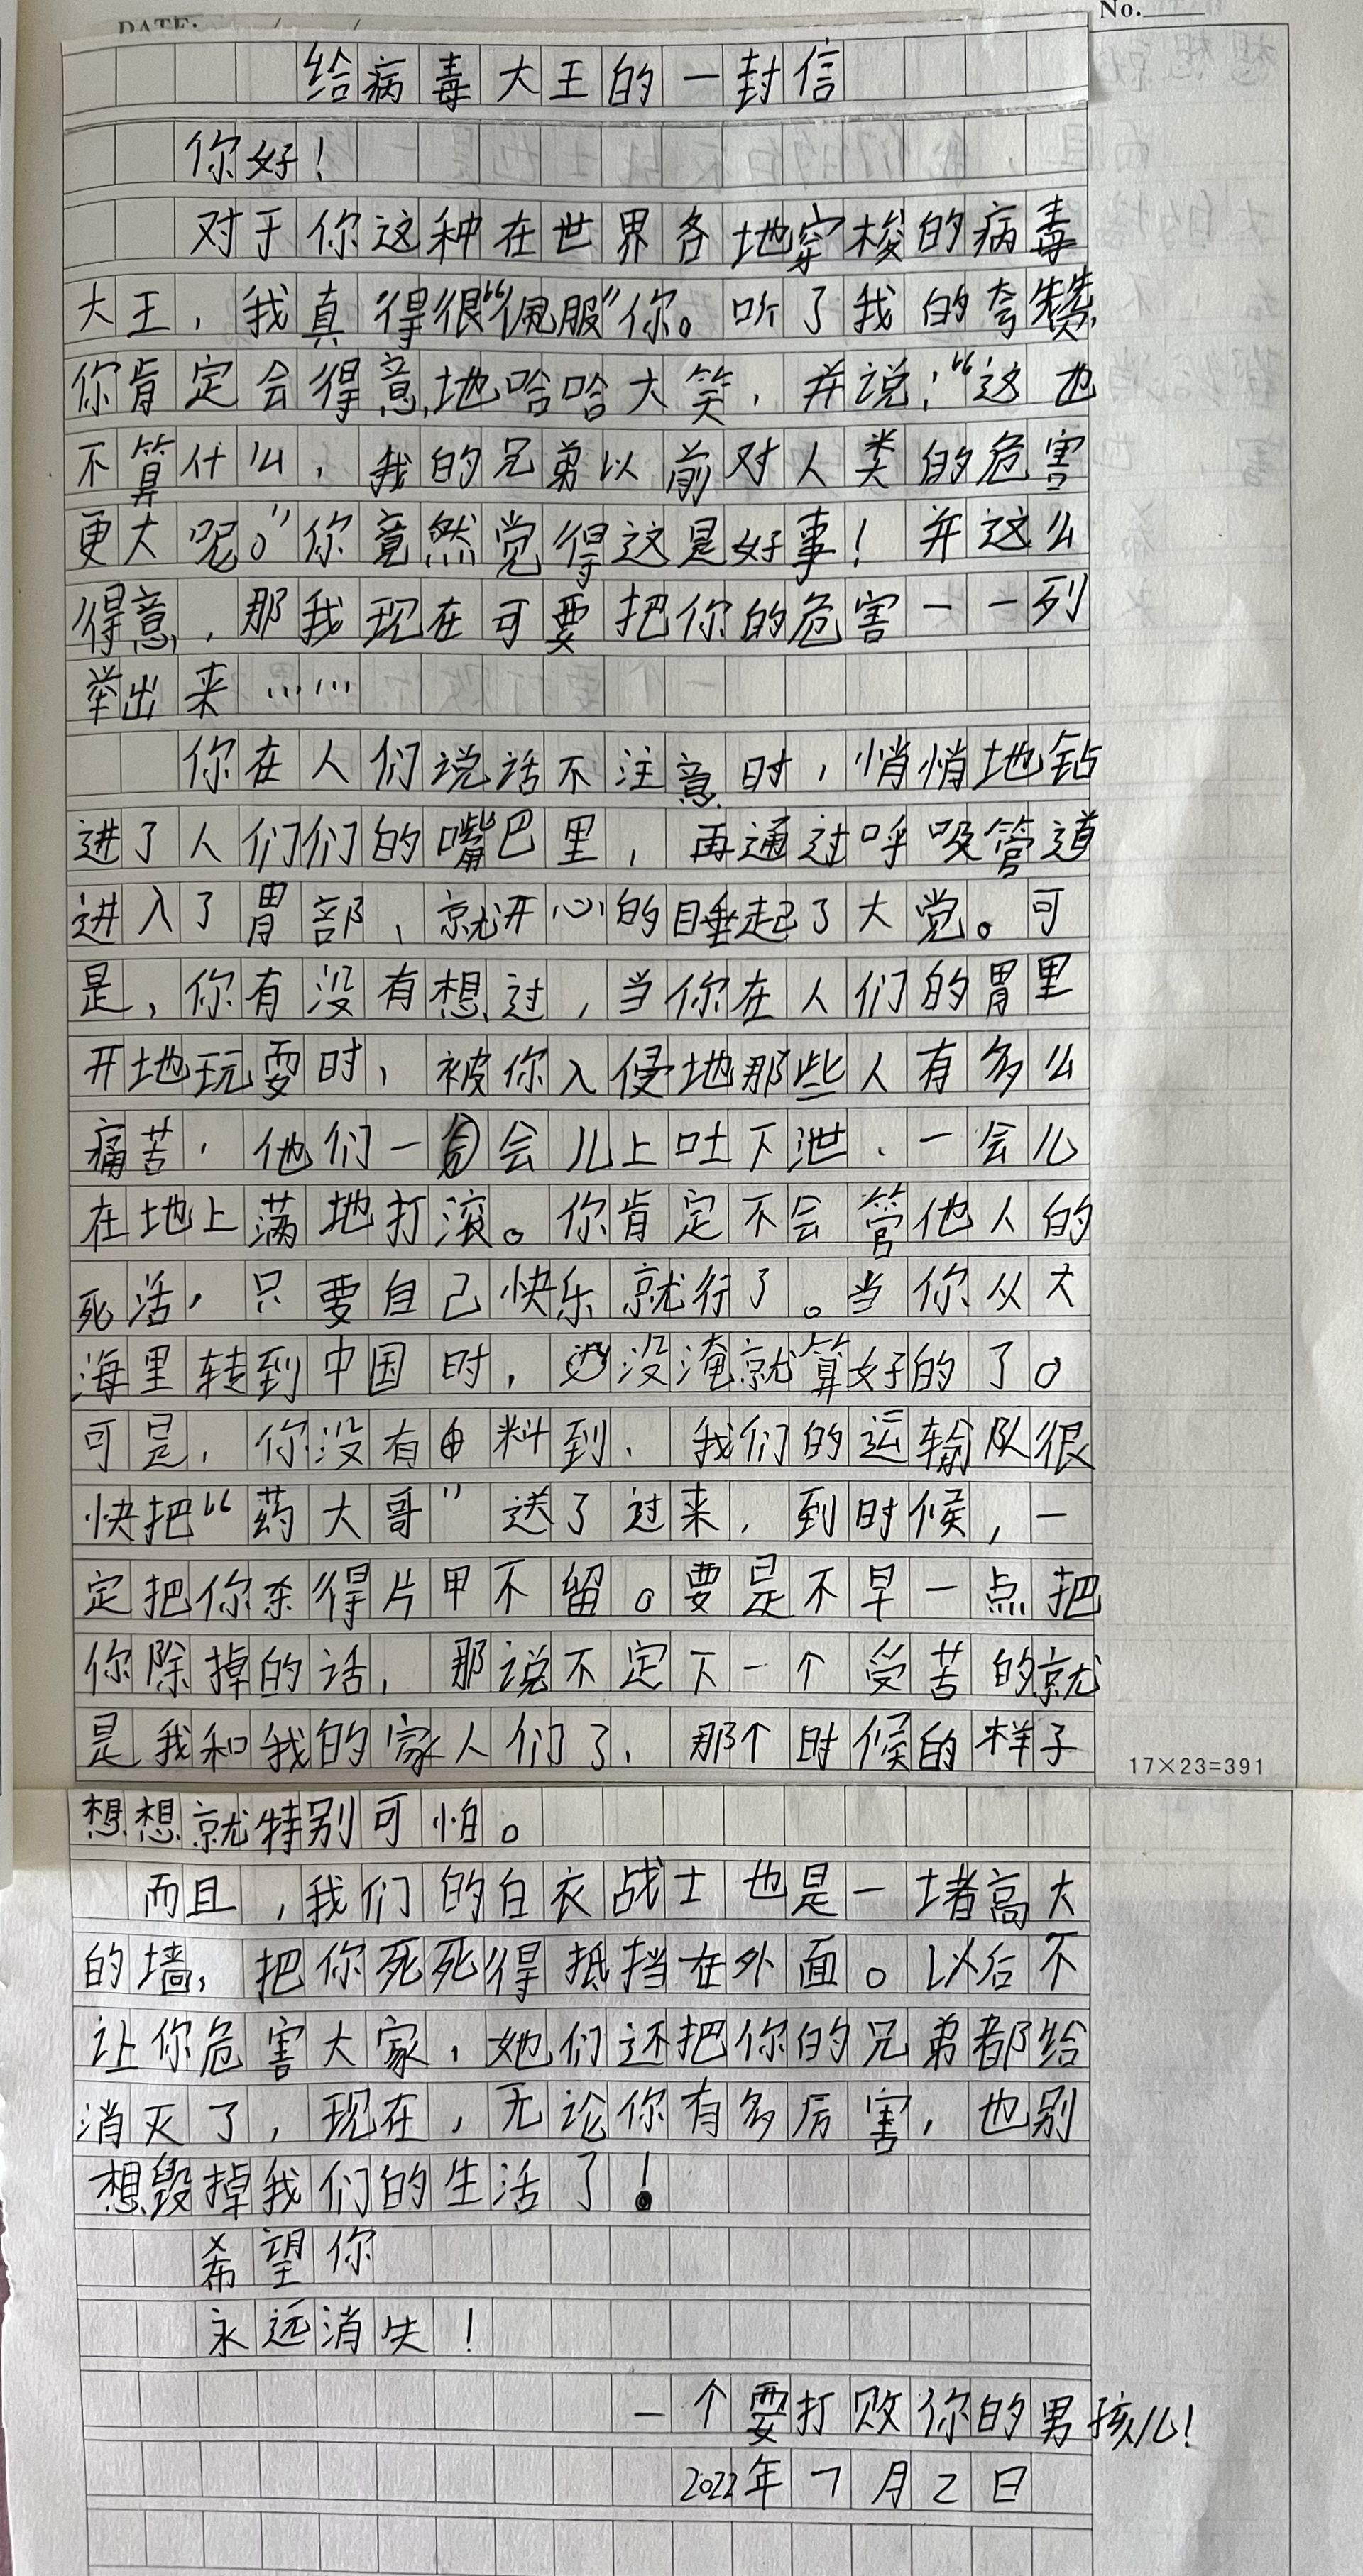 DATE: / /
No.
给病毒大王的一封信
你好！
对于你这种在世界各地穿梭的病毒
大王，我真得很“佩服”你。听了我的夸赞，
你肯定会得意地哈哈大笑，并说：“这也
不算什么，我的兄弟以前对人类的危害
更大呢。”你竟然觉得这是好事！并这么
得意，那我现在可要把你的危害一一列
举出来……
你在人们说话不注意时，悄悄地钻
进了人们们的嘴巴里，再通过呼吸管道
进入了胃部，就开心的睡起了大觉。可
是，你有没有想过，当你在人们的胃里
开地玩耍时，被你入侵地那些人有多么
痛苦，他们一会儿上吐下泄，一会儿
在地上满地打滚。你肯定不会管他人的
死活，只要自己快乐就行了。当你从大
海里转到中国时，没淹就算好的了。
可是，你没有料到，我们的运输队很
快把“药大哥”送了过来，到时候，一
定把你杀得片甲不留。要是不早一点把
你除掉的话，那说不定下一个受苦的就
是我和我的家人们了，那个时候的样子
17×23=391
想想就特别可怕。
而且，我们的白衣战士也是一堵高大
的墙，把你死死得抵挡在外面。以后不
让你危害大家，她们还把你的兄弟都给
消灭了，现在，无论你有多厉害，也别
想毁掉我们的生活了！
希望你
永远消失！
一个要打败你的男孩儿！
2022年7月2日